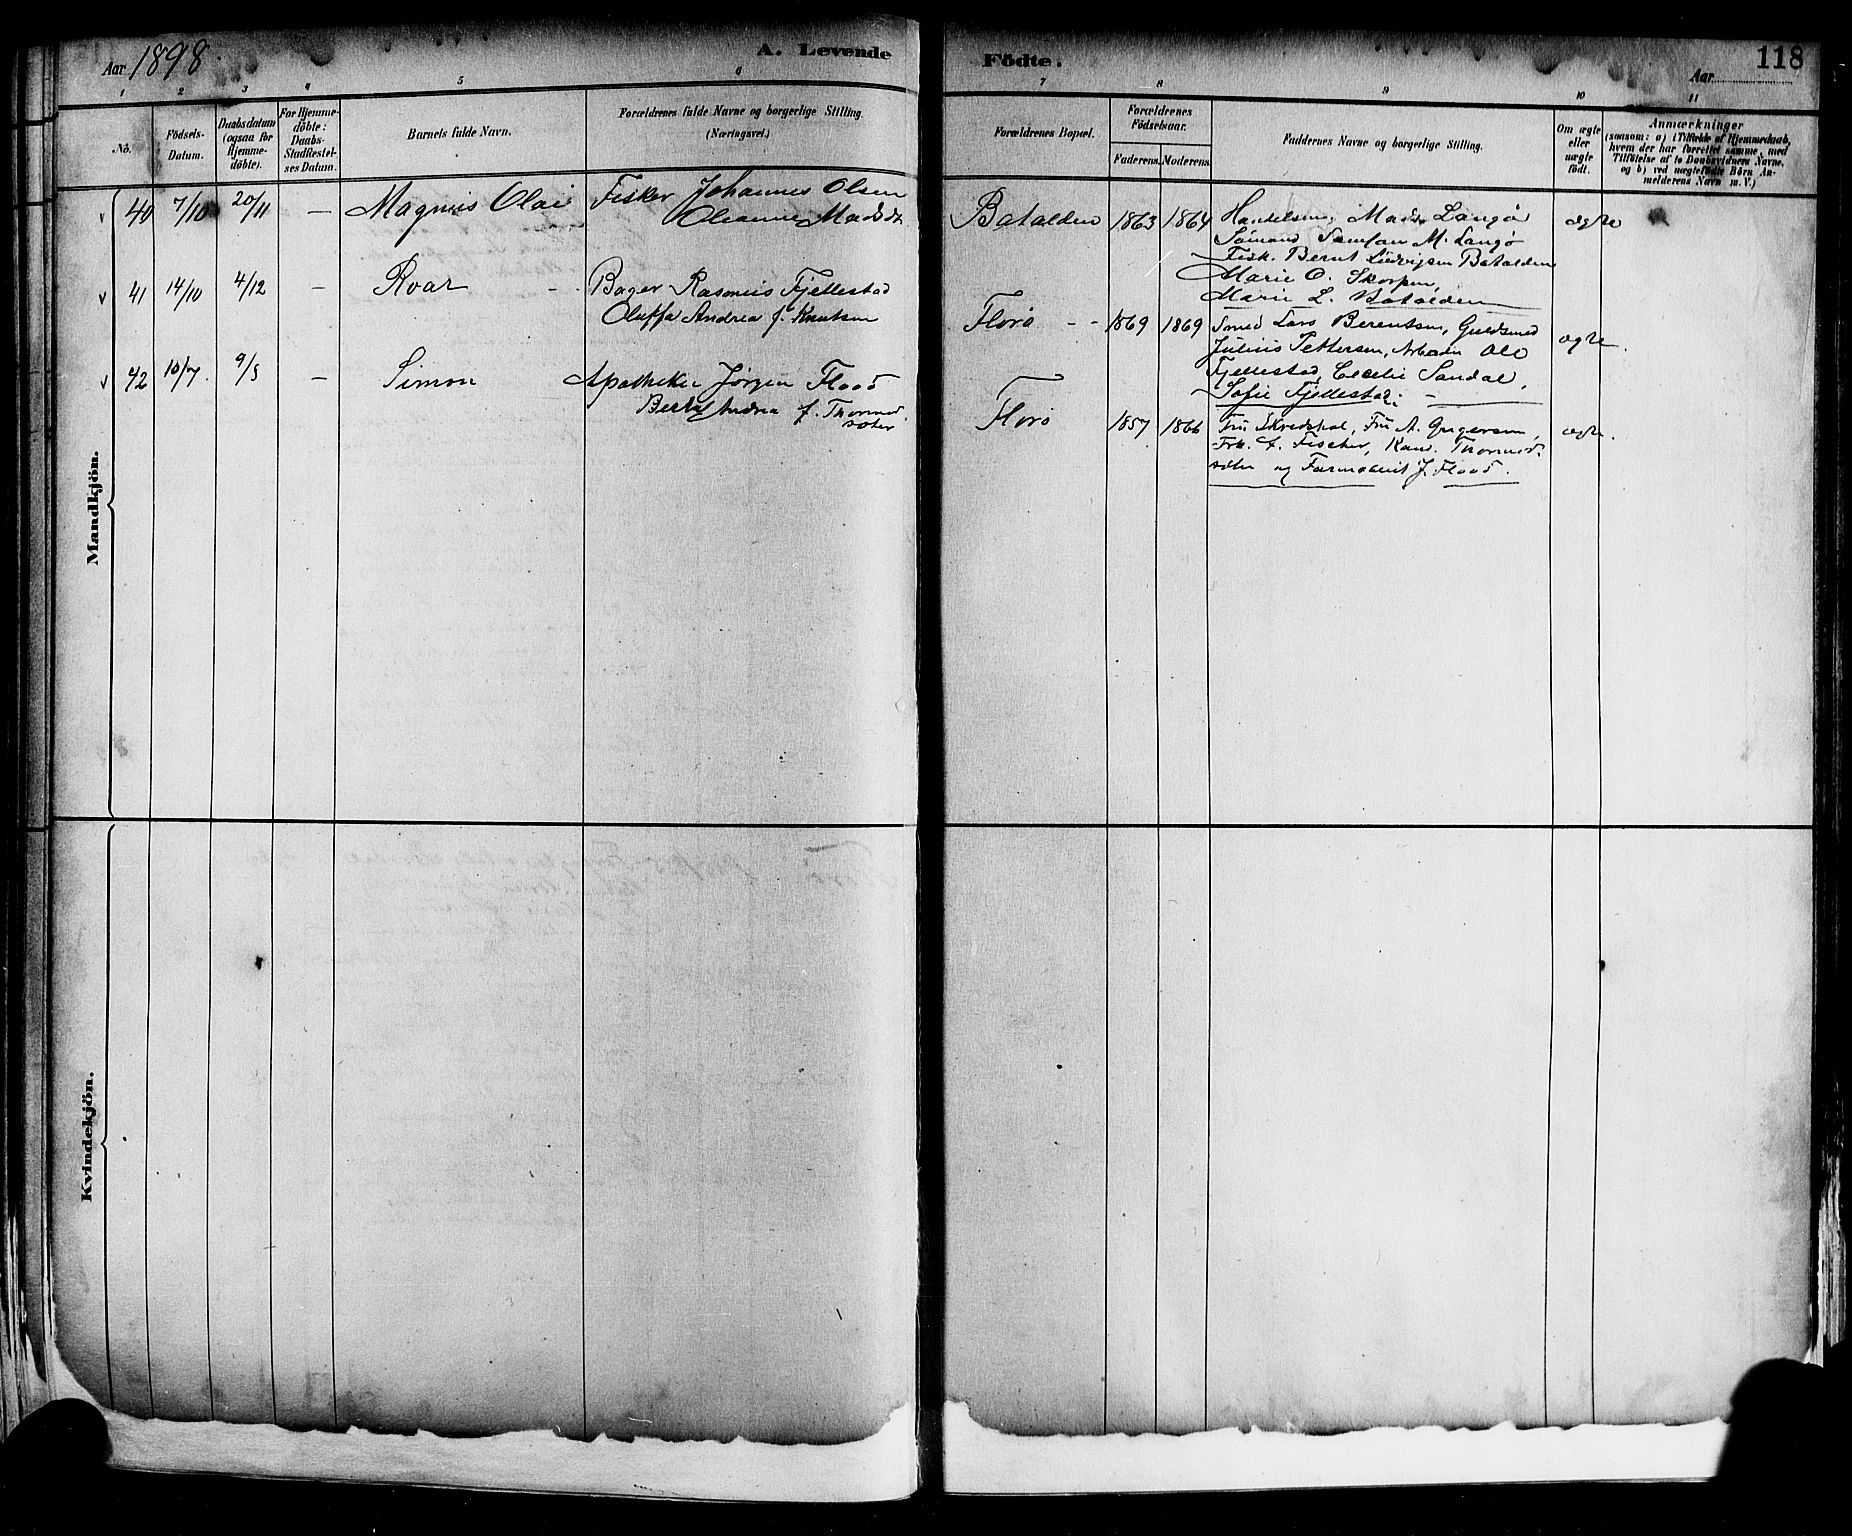 Aar 1898. A. Levende Födte. Aar 118
1 2 3 4 5 6 7 8 9 10 11
No.
Födsels-Datum.
Daabsdatum (ogsaa for Hjemmedöbte).
For Hjemmedöbte: Daabs-Stadfæstelses Datum.
Barnets fulde Navn.
Forældrenes fulde Navne og borgerlige Stilling.
(Næringsvei.)
Forældrenes Bopæl.
Forældrenes Födselsaar.
Faderens. Moderens.
Faddernes Navne og borgerlige Stilling.
Om ægte eller uægte födt.
Anmærkninger
(saasom: a) i Tilfælde af Hjemmedaab,
hvem der har forrettet samme, med
Tilföielse af to Daabsvidners Navne,
og b) ved uægtefödte Börn An-
melderens Navn m. V.)
Mandkjön.
v 40 7/10 20/11 — Magnus Olai Fisker Johannes Olsen
Oleanne Madsdt.
Batalden 1863 1864 Mads Langø ægte
Sømand M. Langø
Fisk. Bernt Ludvigsen Batalden
Marie O. Skorpen,
Marie L. Batalden
v 41 14/10 4/12 — Roar - Bager Rasmus Fjellestad
Oluffa Andrea f. Knutsen
Florø - - 1869 1869 Smed Lars Berentsen, Guldsmed ægte.
Julius Pettersen, Arbeider Ole
Fjellestad, Cecelie Sandal,
Sofie Fjellestad.
v 42 10/7. 9/8 — Simon Apotheker Jørgen Flood
Andrea f. Thormod
sæter
Florø 1857 1866 Fru Fru A. ægte.
Frk. Fischer, Kand. Thormod-
sæter og Farmaceut J. Flood.
Kvindekjön.